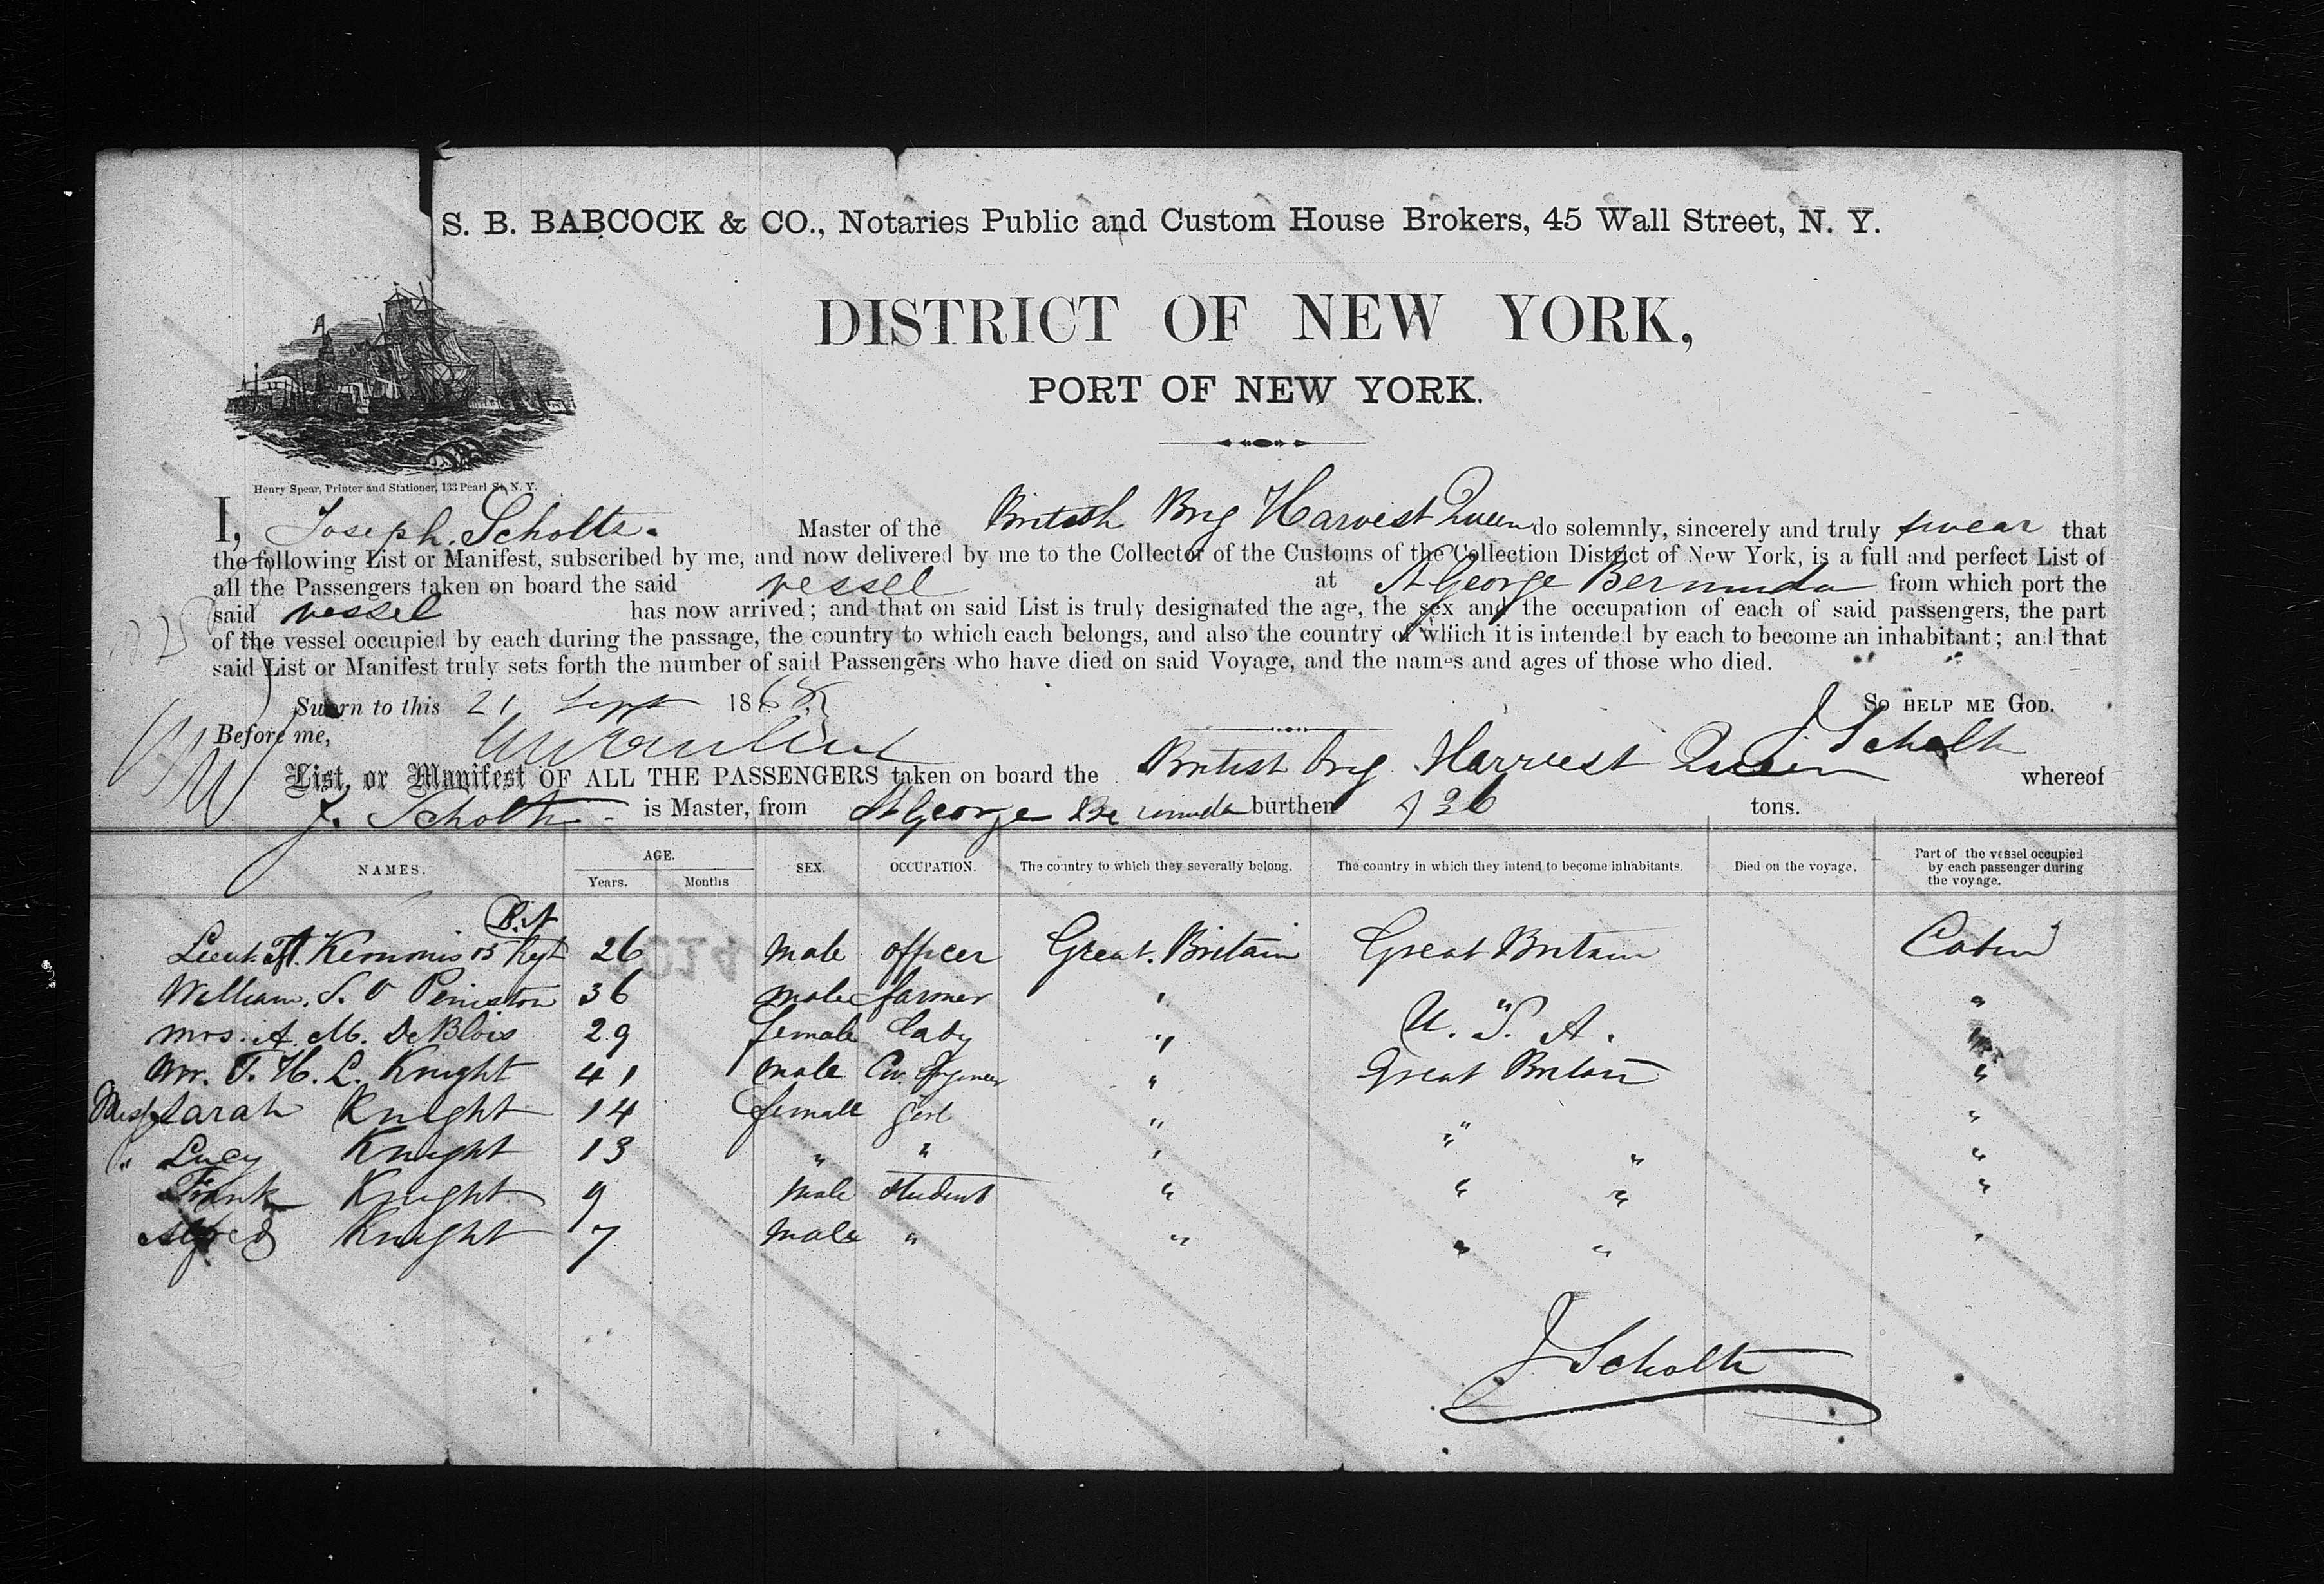 S. B. BABCOCK & CO., Notaries Public and Custom House Brokers, 45 Wall Street, N. Y.
DISTRICT OF NEW YORK,
PORT OF NEW YORK.
Henry Spear, Printer and Stationer, 133 Pearl St, N. Y.
I, Joseph. Scholtz. Master of the British Brig Harvest Queen do solemnly, sincerely and truly swear that
the following List or Manifest, subscribed by me, and now delivered by me to the Collector of the Customs of the Collection District of New York, is a full and perfect List of
all the Passengers taken on board the said vessel at St George Bermuda from which port the
said vessel has now arrived; and that on said List is truly designated the age, the sex and the occupation of each of said passengers, the part
of the vessel occupied by each during the passage, the country to which each belongs, and also the country of which it is intended by each to become an inhabitant; and that
said List or Manifest truly sets forth the number of said Passengers who have died on said Voyage, and the names and ages of those who died.
Sworn to this 21 Sept 186 SO HELP ME GOD.
Before me, J Scholtz
List, or Manifest OF ALL THE PASSENGERS taken on board the British Brig Harvest Queen whereof
J. Scholtz is Master, from St George Bermuda burthen 36 tons.
NAMES. AGE. Years. Months SEX. OCCUPATION. The country to which they severally belong. The country in which they intend to become inhabitants. Died on the voyage. Part of the vessel occupied by each passenger during the voyage.
Lieut. Kemmis 15 Regt 26 male officer Great. Britain Great Britain Cabin
William. S. Peniston 36 male farmer " " "
Mrs. A. M. DeBlois 29 female Lady " U. S. A. "
Mr. T. H. L. Knight 41 male Civ. Engineer " Great Britain "
Miss Sarah Knight 14 female girl " " "
" Lucy Knight 13 " " " " " "
Frank Knight 9 male student " " " "
Alfred Knight 7 male " " " " "
J Scholtz